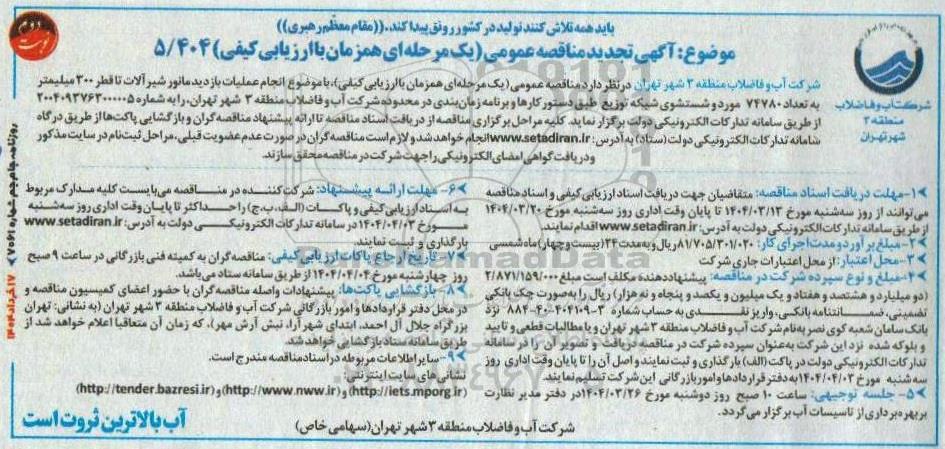 باید همه تلاش کنند تولید در کشور رونق پیدا کند. ((مقام معظم رهبری))
موضوع: آگهی تجدید مناقصه عمومی (یک مرحله ای همزمان با ارزیابی کیفی) ۵/۴۰۴
شرکت آب و فاضلاب
منطقه ۳
شهر تهران
شرکت آب و فاضلاب منطقه ۳ شهر تهران در نظر دارد مناقصه عمومی (یک مرحله‌ای همزمان با ارزیابی کیفی)، با موضوع انجام عملیات بازدید مانور شیرآلات تا قطر ۳۰۰ میلیمتر
به تعداد ۷۴۷۸۰ مورد و شستشوی شبکه توزیع طبق دستور کارها و برنامه زمان‌بندی در محدوده شرکت آب و فاضلاب منطقه ۳ شهر تهران، را به شماره ۲۰۰۴۰۹۳۷۶۳۰۰۰۰۰۵
از طریق سامانه تدارکات الکترونیکی دولت برگزار نماید. کلیه مراحل برگزاری مناقصه از دریافت اسناد مناقصه تا ارائه پیشنهاد مناقصه گران و بازگشایی پاکت‌ها از طریق درگاه
سامانه تدارکات الکترونیکی دولت (ستاد) به آدرس: www.setadiran.ir انجام خواهد شد و لازم است مناقصه گران در صورت عدم عضویت قبلی، مراحل ثبت‌نام در سایت مذکور
و دریافت گواهی امضای الکترونیکی را جهت شرکت در مناقصه محقق سازند.
۱- مهلت دریافت اسناد مناقصه: متقاضیان جهت دریافت اسناد ارزیابی کیفی و اسناد مناقصه
می‌توانند از روز سه‌شنبه مورخ ۱۴۰۴/۰۳/۱۳ تا پایان وقت اداری روز سه‌شنبه مورخ ۱۴۰۴/۰۳/۲۰
از طریق سامانه تدارکات الکترونیکی دولت به آدرس: www.setadiran.ir اقدام نمایند.
۲- مبلغ برآورد و مدت اجرای کار: ۸۱/۷۰۵/۳۰۱/۰۲۰ ریال و به مدت ۲۴ (بیست و چهار) ماه شمسی
۳- محل اعتبار: از محل اعتبارات جاری شرکت
۴- مبلغ و نوع سپرده شرکت در مناقصه: پیشنهاددهنده مکلف است مبلغ ۲/۸۷۱/۱۵۹/۰۰۰
(دو میلیارد و هشتصد و هفتاد و یک میلیون و یکصد و پنجاه و نه هزار) ریال را به‌صورت چک بانکی
تضمینی، ضمانتنامه بانکی، واریز نقدی به حساب شماره ۳-۴۰۴۱۰۹-۴۰-۸۸۴ نزد
بانک سامان شعبه کوی نصر به نام شرکت آب و فاضلاب منطقه ۳ شهر تهران و یا مطالبات قطعی و تایید
و بلوکه شده نزد این شرکت به‌عنوان سپرده شرکت در مناقصه دریافت و تصویر آن را در سامانه
تدارکات الکترونیکی دولت در پاکت (الف) بارگذاری و ثبت نمایند و اصل آن را تا پایان وقت اداری روز
سه شنبه مورخ ۱۴۰۴/۰۴/۰۳ به دفتر قراردادها و امور بازرگانی این شرکت تسلیم نمایند.
۵- جلسه توجیهی: ساعت ۱۰ صبح روز دوشنبه مورخ ۱۴۰۴/۰۳/۲۶ در دفتر مدیر نظارت
بر بهره برداری از تاسیسات آب برگزار می‌گردد.
۶- مهلت ارائه پیشنهاد: شرکت‌کننده در مناقصه می‌بایست کلیه مدارک مربوط
به اسناد ارزیابی کیفی و پاکات (الف، ب، ج) را حداکثر تا پایان وقت اداری روز سه‌شنبه
مورخ ۱۴۰۴/۰۴/۰۳ در سامانه تدارکات الکترونیکی دولت به آدرس: www.setadiran.ir
بارگذاری و ثبت نمایند.
۷- تاریخ ارجاع پاکات ارزیابی کیفی: مناقصه گران به کمیته فنی بازرگانی در ساعت ۹ صبح
روز چهارشنبه مورخ ۱۴۰۴/۰۴/۰۴ از طریق سامانه ستاد می‌باشد.
۸- بازگشایی پاکت‌ها: پیشنهادات واصله مناقصه گران با حضور اعضای کمیسیون مناقصه و
در محل دفتر قراردادها و امور بازرگانی شرکت آب و فاضلاب منطقه ۳ شهر تهران (به نشانی: تهران
بزرگراه جلال آل احمد، ابتدای شهرآرا، نبش آرش مهر)، که زمان آن متعاقبا اعلام خواهد شد از
طریق سامانه ستاد بازگشایی خواهد شد.
۹- سایر اطلاعات مربوطه در اسناد مناقصه مندرج است.
نشانی‌های سایت اینترنتی
(http://iets.mporg.ir) و (http://www.nww.ir) و (http://tender.bazresi.ir)
شرکت آب و فاضلاب منطقه ۳ شهر تهران (سهامی خاص)
آب بالاترین ثروت است
روزنامه جام جم شماره ۷۰۶۱
۱۷ خرداد ۱۴۰۴